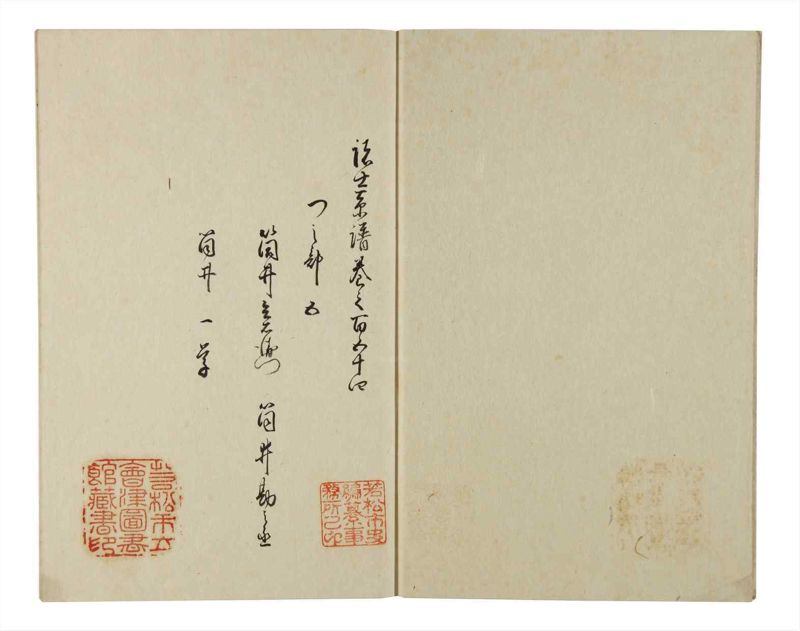 諸士系譜巻之百五十四
つ之部 五
筒井 筒井勘之丞
筒井一学
若松市史
編纂事
務所之印
若松市立
會津圖書
館藏書印